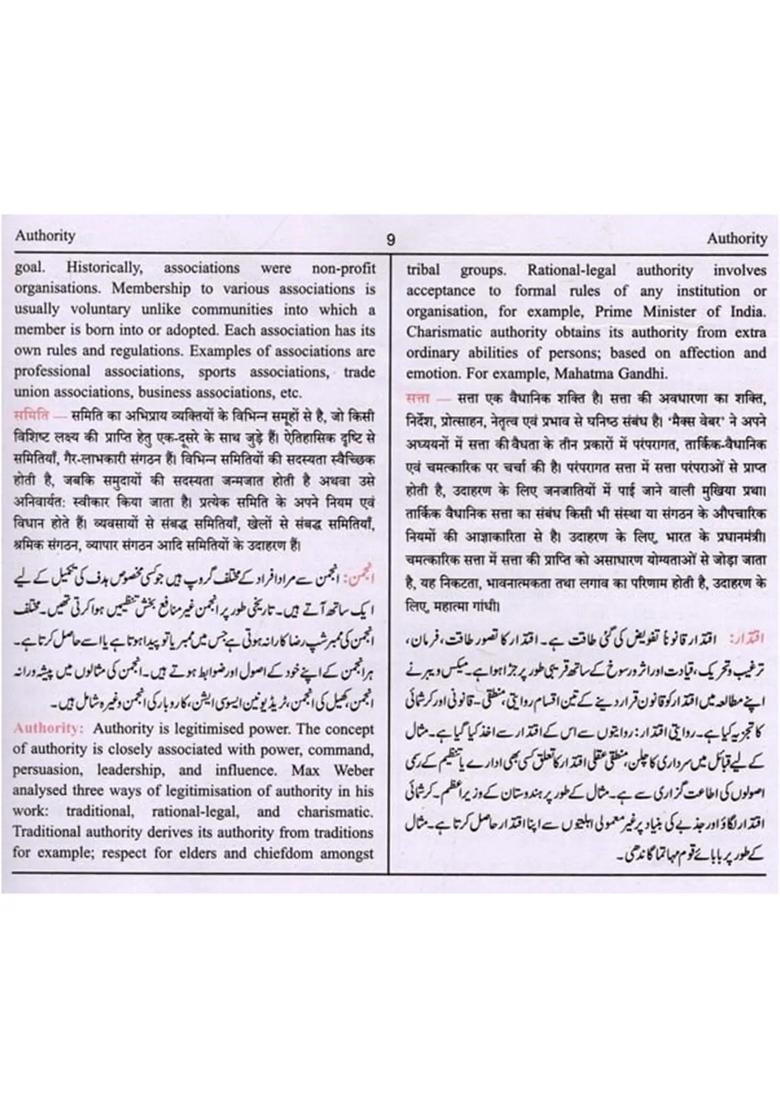 Authority
9
Authority
goal. Historically, associations were non-profit
organisations. Membership to various associations is
usually voluntary unlike communities into which a
member is born into or adopted. Each association has its
own rules and regulations. Examples of associations are
professional associations, sports associations, trade
union associations, business associations, etc.
समिति — समिति का अभिप्राय व्यक्तियों के विभिन्न समूहों से है, जो किसी
विशिष्ट लक्ष्य की प्राप्ति हेतु एक-दूसरे के साथ जुड़े हैं। ऐतिहासिक दृष्टि से
समितियाँ, गैर-लाभकारी संगठन हैं। विभिन्न समितियों की सदस्यता स्वैच्छिक
होती है, जबकि समुदायों की सदस्यता जन्मजात होती है अथवा उसे
अनिवार्यत: स्वीकार किया जाता है। प्रत्येक समिति के अपने नियम एवं
विधान होते हैं। व्यवसायों से संबद्ध समितियाँ, खेलों से संबद्ध समितियाँ,
श्रमिक संगठन, व्यापार संगठन आदि समितियों के उदाहरण हैं।
انجمن: انجمن سے مراد افراد کے مختلف گروپ ہیں جو کسی مخصوص ہدف کی تکمیل کے لیے
ایک ساتھ آتے ہیں۔ تاریخی طور پر انجمن غیر منافع بخش تنظیمیں ہوا کرتی تھیں۔ مختلف
انجمن کی ممبرشپ رضا کارانہ ہوتی ہے جس میں ممبر یا تو پیدا ہوتا ہے یا اسے حاصل کرتا ہے۔
ہر انجمن کے اپنے خود کے اصول اور ضوابط ہوتے ہیں۔ انجمن کی مثالوں میں پیشہ ورانہ
انجمن، کھیل کی انجمن، ٹریڈ یونین ایسوسی ایشن، کاروبار کی انجمن وغیرہ شامل ہیں۔
Authority: Authority is legitimised power. The concept
of authority is closely associated with power, command,
persuasion, leadership, and influence. Max Weber
analysed three ways of legitimisation of authority in his
work: traditional, rational-legal, and charismatic.
Traditional authority derives its authority from traditions
for example; respect for elders and chiefdom amongst
tribal groups. Rational-legal authority involves
acceptance to formal rules of any institution or
organisation, for example, Prime Minister of India.
Charismatic authority obtains its authority from extra
ordinary abilities of persons; based on affection and
emotion. For example, Mahatma Gandhi.
सत्ता — सत्ता एक वैधानिक शक्ति है। सत्ता की अवधारणा का शक्ति,
निर्देश, प्रोत्साहन, नेतृत्व एवं प्रभाव से घनिष्ठ संबंध है। 'मैक्स वेबर' ने अपने
अध्ययनों में सत्ता की वैधता के तीन प्रकारों में परंपरागत, तार्किक-वैधानिक
एवं चमत्कारिक पर चर्चा की है। परंपरागत सत्ता में सत्ता परंपराओं से प्राप्त
होती है, उदाहरण के लिए जनजातियों में पाई जाने वाली मुखिया प्रथा।
तार्किक वैधानिक सत्ता का संबंध किसी भी संस्था या संगठन के औपचारिक
नियमों की आज्ञाकारिता से है। उदाहरण के लिए, भारत के प्रधानमंत्री।
चमत्कारिक सत्ता में सत्ता की प्राप्ति को असाधारण योग्यताओं से जोड़ा जाता
है, यह निकटता, भावनात्मकता तथा लगाव का परिणाम होती है, उदाहरण के
लिए, महात्मा गांधी।
اقتدار: اقتدار قانوناً تفویض کی گئی طاقت ہے۔ اقتدار کا تصور طاقت، فرمان،
ترغیب و تحریک، قیادت اور اثر و رسوخ کے ساتھ قریبی طور پر جڑا ہوا ہے۔ میکس ویبر نے
اپنے مطالعہ میں اقتدار کو قانون قرار دینے کے تین اقسام روایتی، منطقی۔قانونی اور کرشمائی
کا تجزیہ کیا ہے۔ روایتی اقتدار: روایتوں سے اس کے اقتدار سے اخذ کیا گیا ہے۔ مثال
کے لیے قبائل میں سرداری کا چلن، منطقی عقلی اقتدار کا تعلق کسی بھی ادارے یا تنظیم کے رسمی
اصولوں کی اطاعت گزاری سے ہے۔ مثال کے طور پر ہندوستان کے وزیر اعظم۔ کرشمائی
اقتدار لگاؤ اور جذبے کی بنیاد پر غیر معمولی اہلیتوں سے اپنا اقتدار حاصل کرتا ہے۔ مثال
کے طور پر بابائے قوم مہاتما گاندھی۔